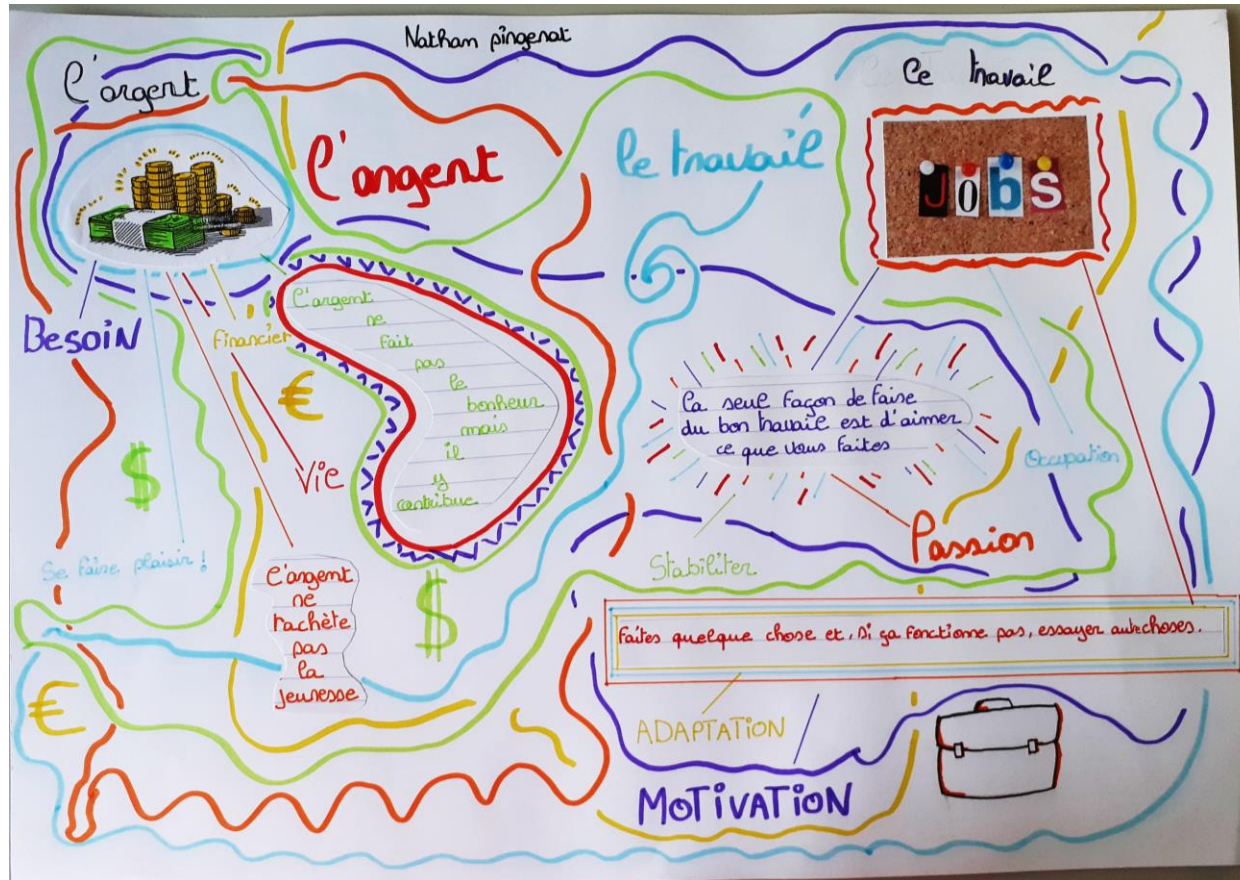 Nathan pingenat
L'argent
Le travail
L'argent
le travail
JOBS
Besoin
Financier
€
Vie
$
Se faise plaisir !
L'argent
ne
fait
pas
le
bonheur
mais
il
y
contribue
L'argent
ne
rachète
pas
la
jeunesse
$
€
La seul façon de faise
du bon travail est d'aimer
ce que vous faites
Occupation
Passion
Stabiliter
Faites quelque chose et, si ça fonctione pas, essayer autrechoses.
ADAPTATION
MOTIVATION